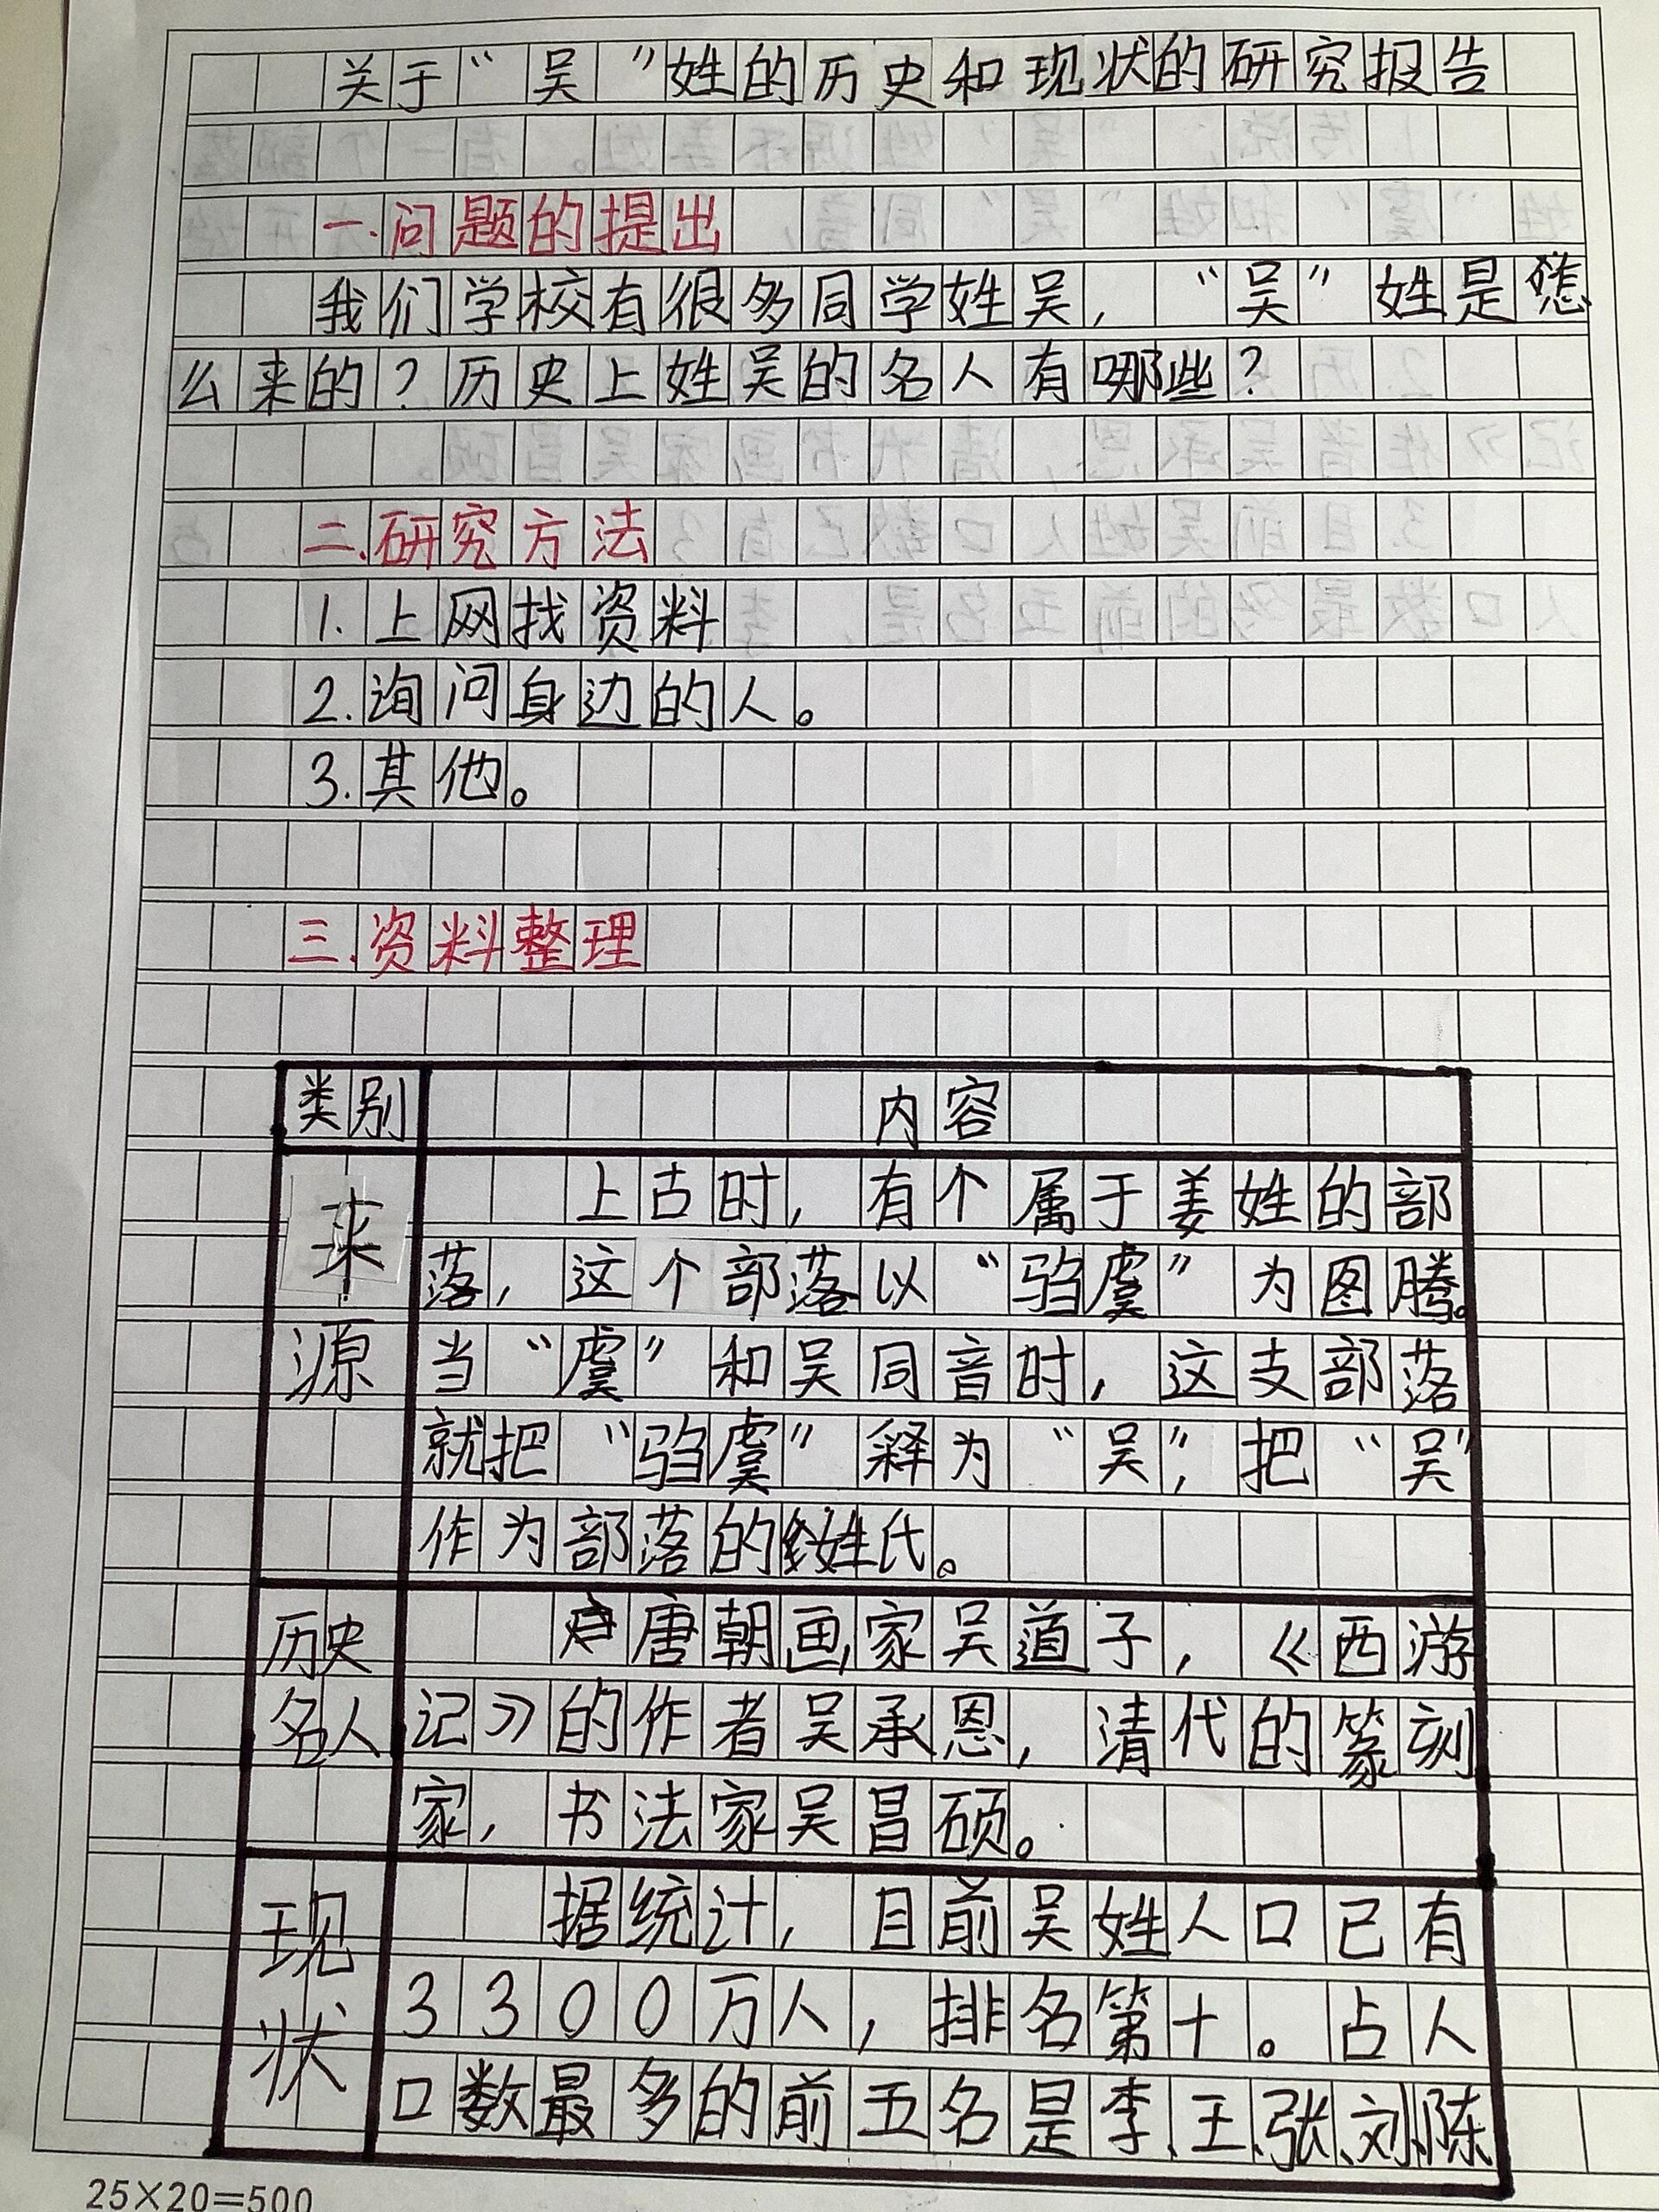 关于“吴”姓的历史和现状的研究报告
一.问题的提出
我们学校有很多同学姓吴，“吴”姓是怎
么来的？历史上姓吴的名人有哪些？
二.研究方法
1.上网找资料
2.询问身边的人。
3.其他。
三.资料整理
类别 内容
来源
上古时，有个属于姜姓的部
落，这个部落以“驺虞”为图腾。
当“虞”和吴同音时，这支部落
就把“驺虞”释为“吴”，把“吴”
作为部落的姓氏。
历史
名人
唐朝画家吴道子，《西游
记》的作者吴承恩，清代的篆刻
家，书法家吴昌硕。
现状
据统计，目前吴姓人口已有
3300万人，排名第十。占人
口数最多的前五名是李、王、张、刘、陈
25×20=500